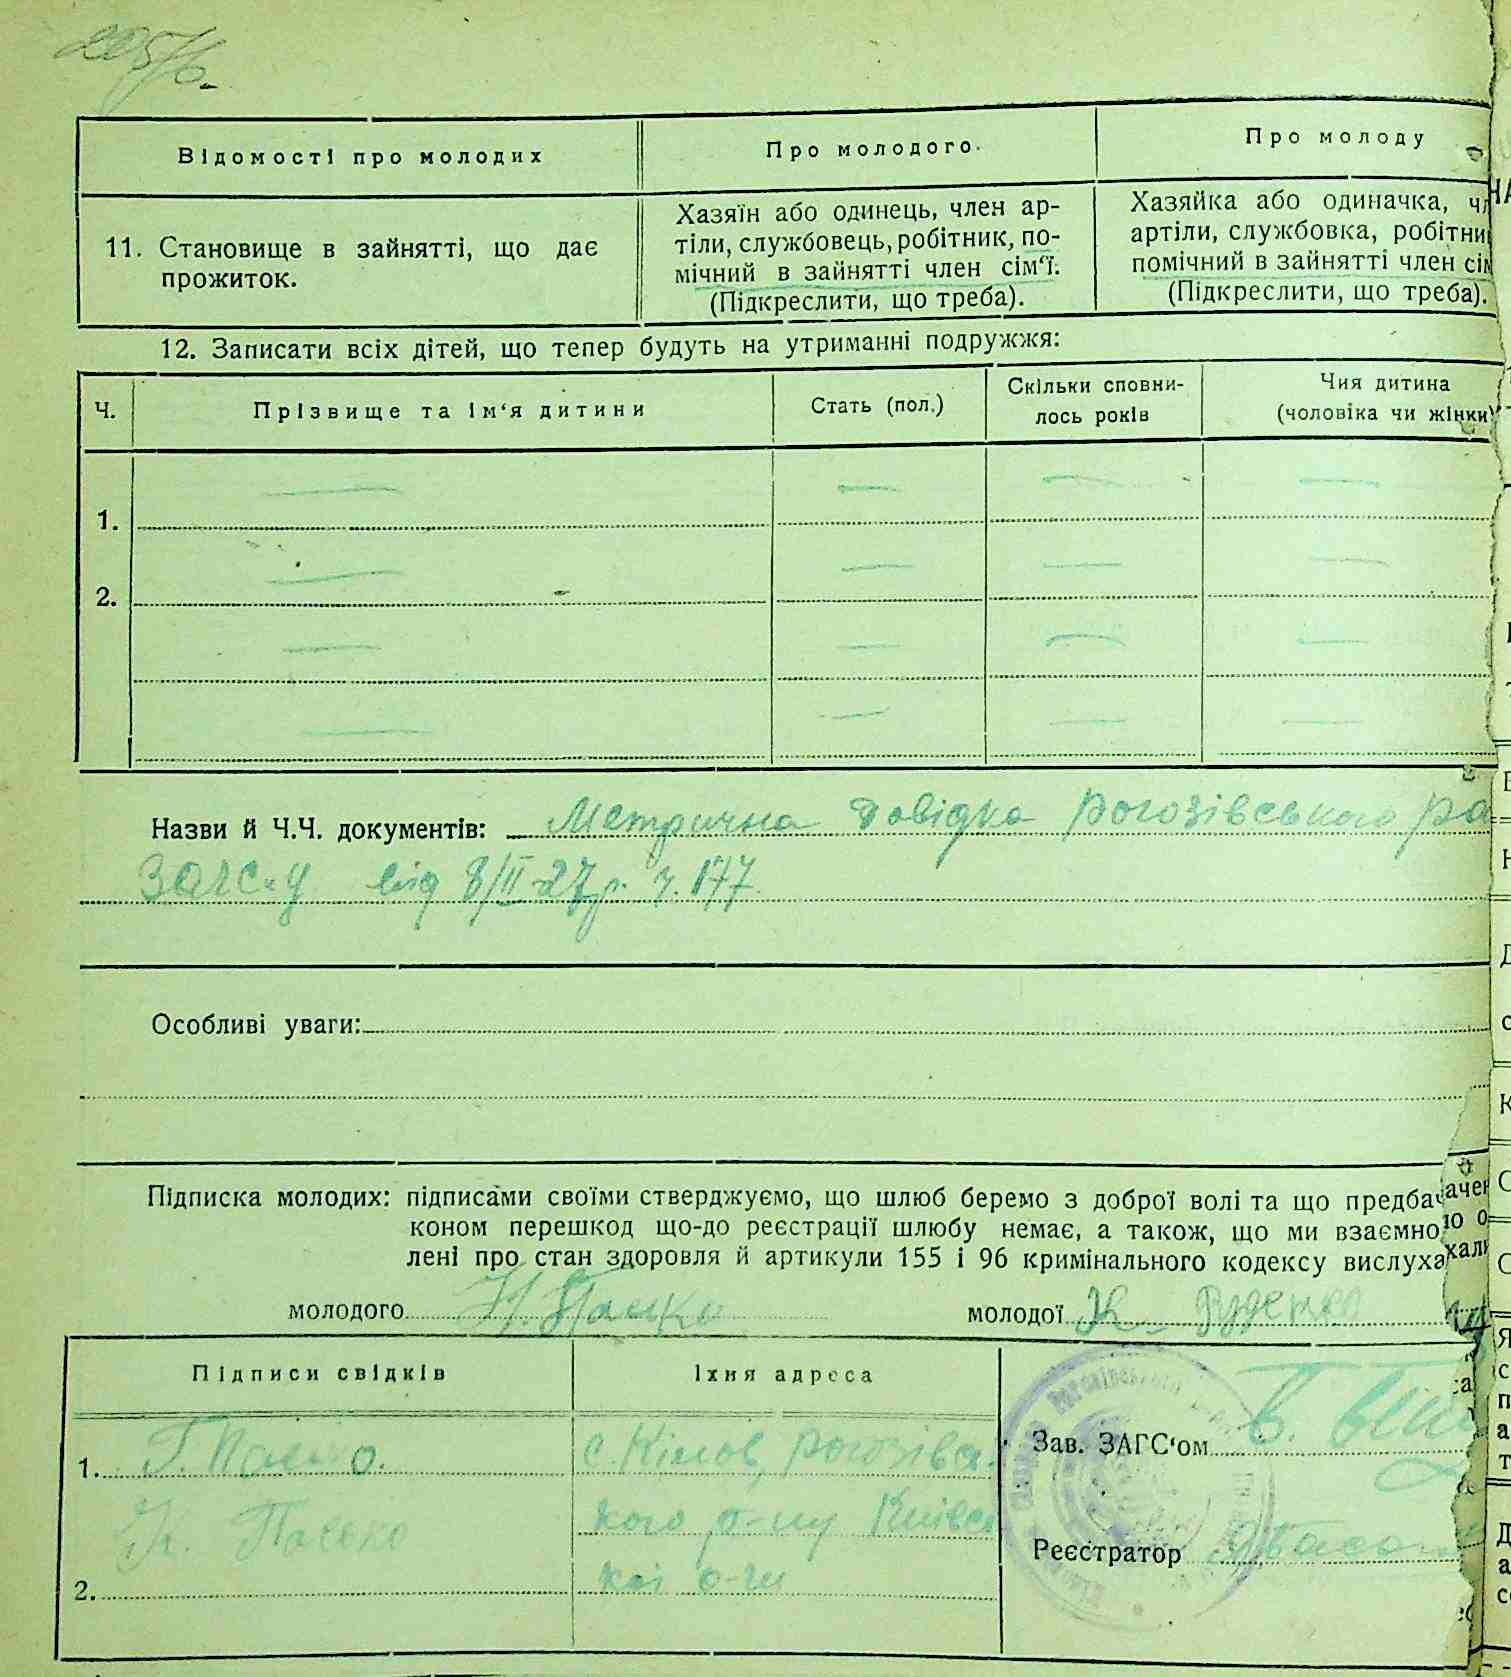 Відомості про молодих
Про молодого.
Про молоду
11. Становище в зайнятті, що дає
прожиток.
Хазяїн або одинець, член ар-
тіли, службовець, робітник, по-
мічний в зайнятті член сім'ї.
(Підкреслити, що треба).
Хазяйка або одиначка, чл
артіли, службовка, робітни
помічний в зайнятті член сім
(Підкреслити, що треба).
12. Записати всіх дітей, що тепер будуть на утриманні подружжя:
Ч.
Прізвище та ім'я дитини
Стать (пол.)
Скільки сповни-
лось років
Чия дитина
(чоловіка чи жінки)
1.
2.
Назви й Ч.Ч. документів: Метрична довідка Рогозівського ра
ЗАГС-у від 8/II-27 р. ч. 177
Особливі уваги:
Підписка молодих: підписами своїми стверджуємо, що шлюб беремо з доброї волі та що предбачен
коном перешкод що-до реєстрації шлюбу немає, а також, що ми взаємно
лені про стан здоровля й артикули 155 і 96 кримінального кодексу вислухали
молодого
молодої К. Руденко
Підписи свідків
Їхня адреса
1.
с. Кілов, Рогозівсь
кого р-ну Київсь
кої о-ги
2.
Зав. ЗАГС'ом
Реєстратор